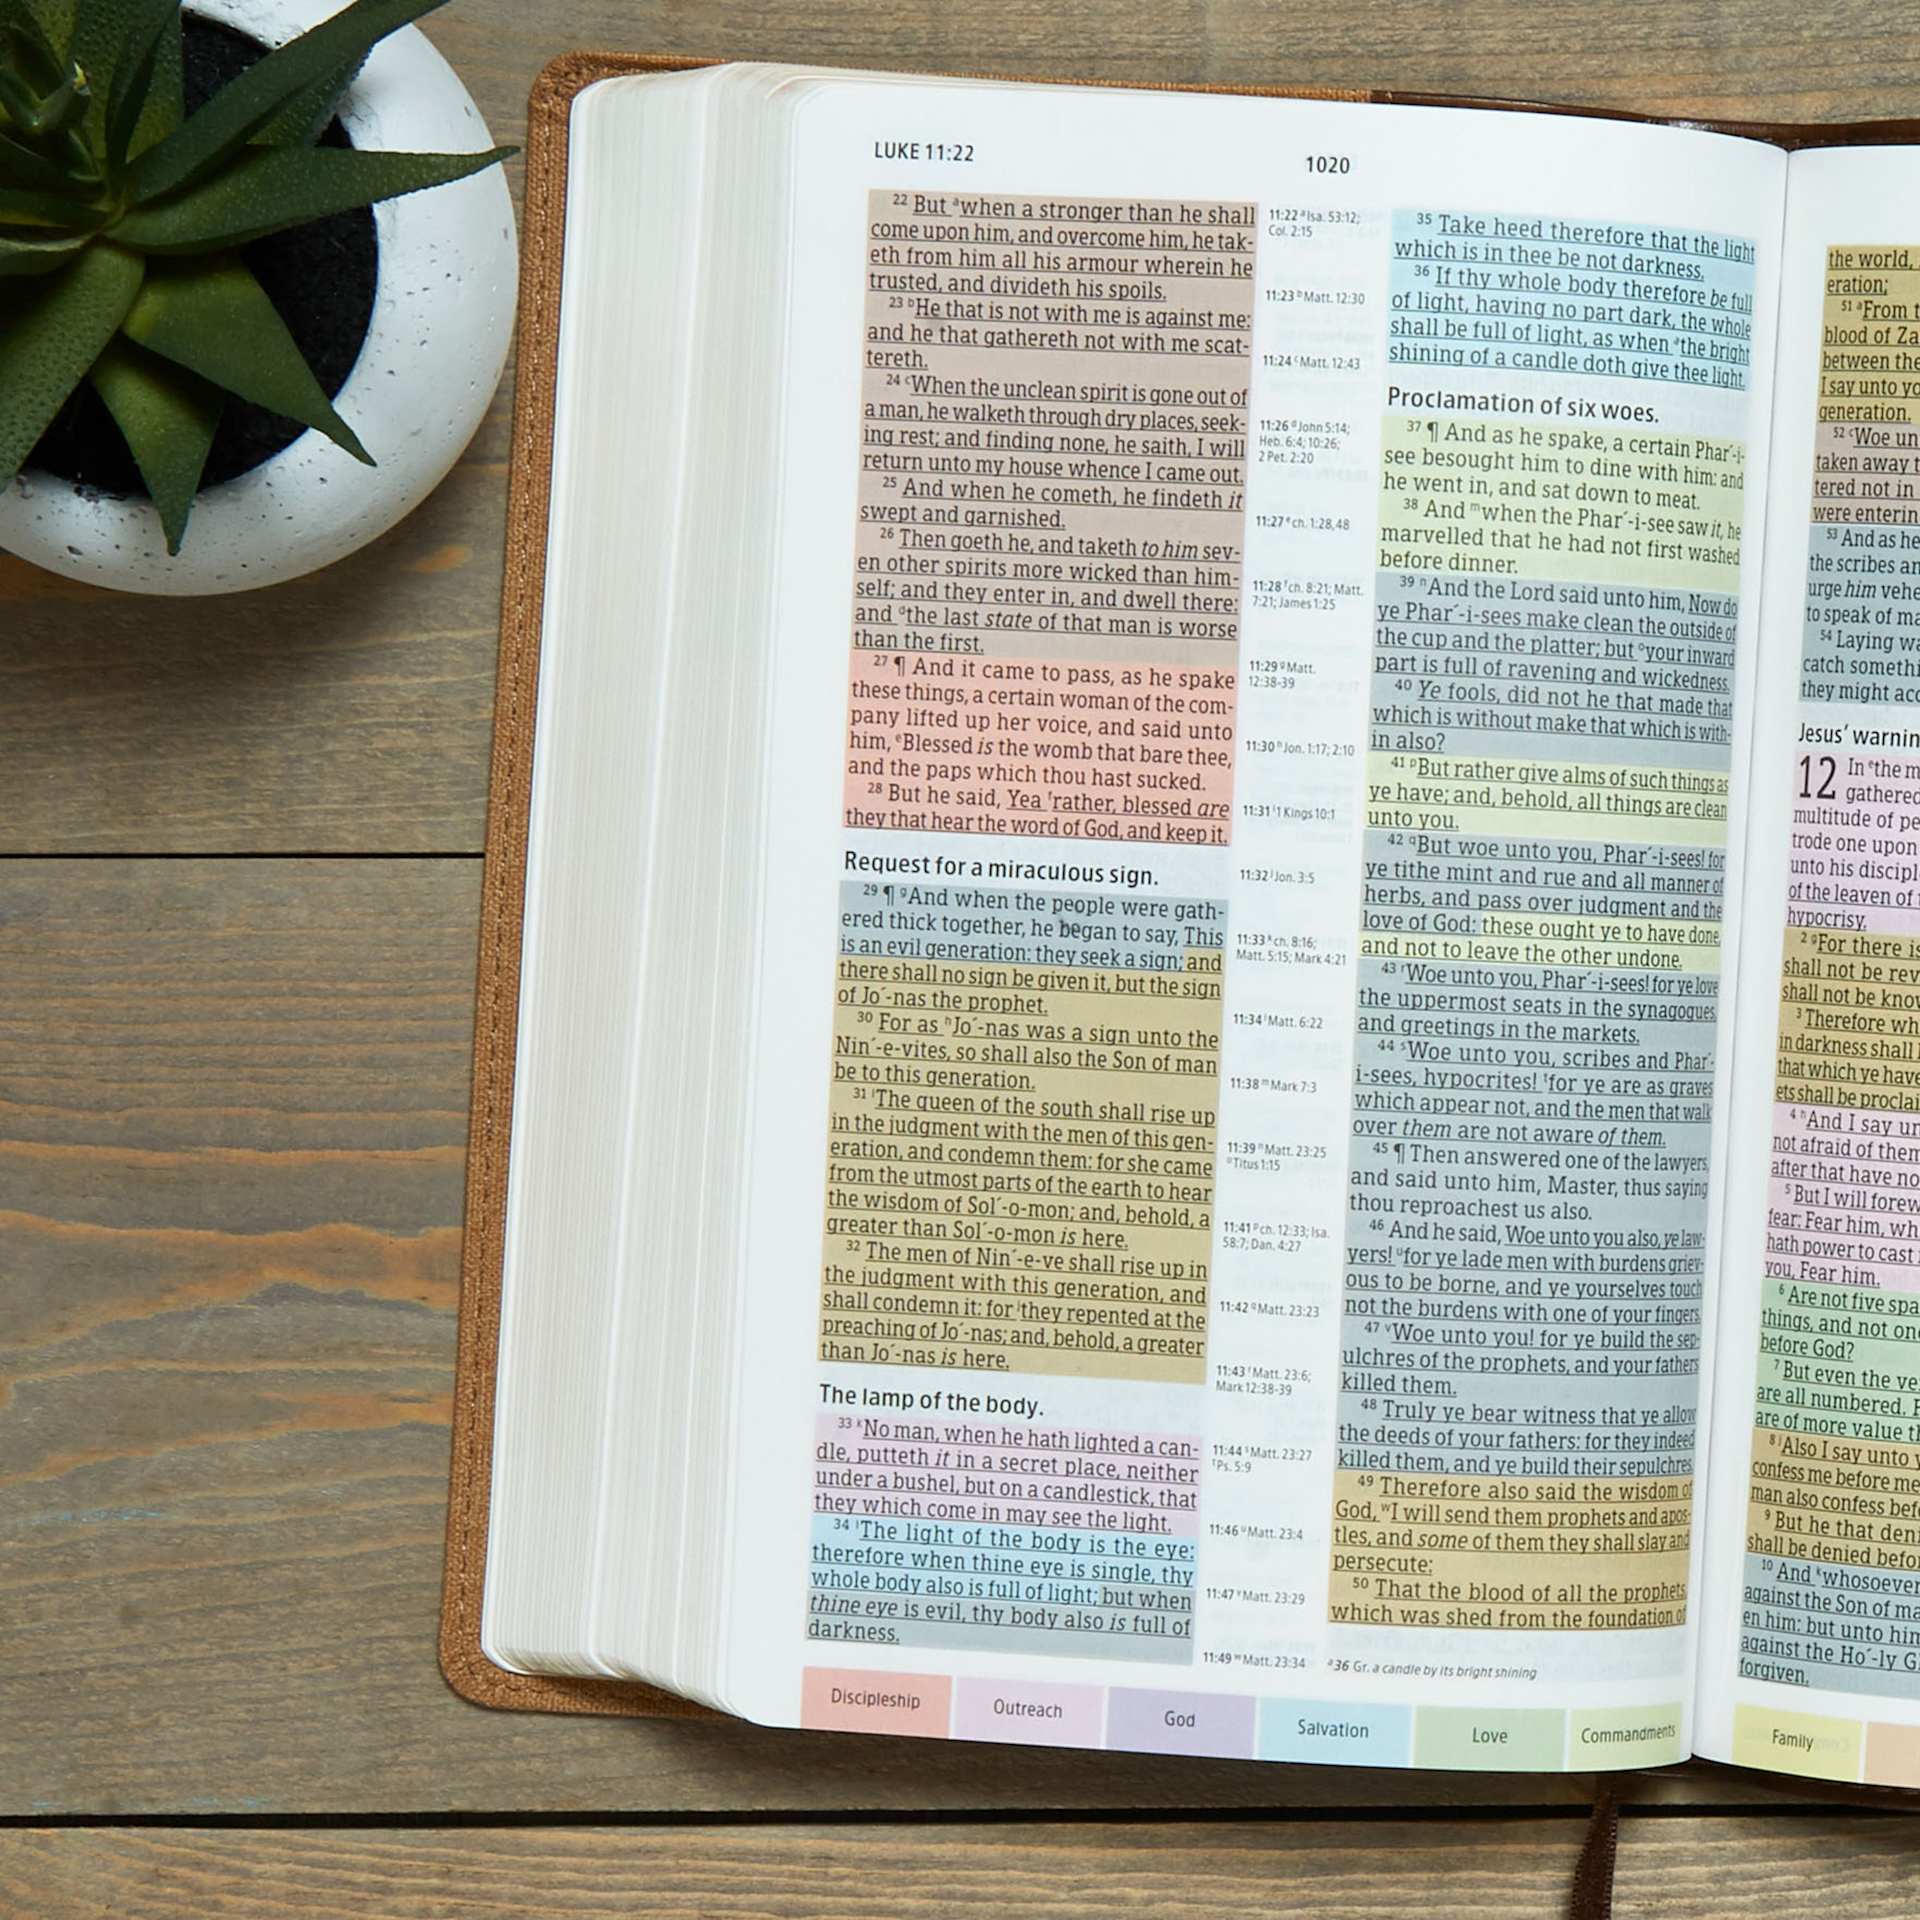 LUKE 11:22
1020
22 But ᵃwhen a stronger than he shall
come upon him, and overcome him, he tak-
eth from him all his armour wherein he
trusted, and divideth his spoils.
23 ᵇHe that is not with me is against me:
and he that gathereth not with me scat-
tereth.
24 ᶜWhen the unclean spirit is gone out of
a man, he walketh through dry places, seek-
ing rest; and finding none, he saith, I will
return unto my house whence I came out.
25 And when he cometh, he findeth it
swept and garnished.
26 Then goeth he, and taketh to him sev-
en other spirits more wicked than him-
self; and they enter in, and dwell there:
and ᵈthe last state of that man is worse
than the first.
27 ¶ And it came to pass, as he spake
these things, a certain woman of the com-
pany lifted up her voice, and said unto
him, ᵉBlessed is the womb that bare thee,
and the paps which thou hast sucked.
28 But he said, Yea ᶠrather, blessed are
they that hear the word of God, and keep it.
Request for a miraculous sign.
29 ¶ ᵍAnd when the people were gath-
ered thick together, he began to say, This
is an evil generation: they seek a sign; and
there shall no sign be given it, but the sign
of Jo´-nas the prophet.
30 For as ʰJo´-nas was a sign unto the
Nin´-e-vites, so shall also the Son of man
be to this generation.
31 ⁱThe queen of the south shall rise up
in the judgment with the men of this gen-
eration, and condemn them: for she came
from the utmost parts of the earth to hear
the wisdom of Sol´-o-mon; and, behold, a
greater than Sol´-o-mon is here.
32 The men of Nin´-e-ve shall rise up in
the judgment with this generation, and
shall condemn it: for ʲthey repented at the
preaching of Jo´-nas; and, behold, a greater
than Jo´-nas is here.
The lamp of the body.
33 ᵏNo man, when he hath lighted a can-
dle, putteth it in a secret place, neither
under a bushel, but on a candlestick, that
they which come in may see the light.
34 ˡThe light of the body is the eye:
therefore when thine eye is single, thy
whole body also is full of light; but when
thine eye is evil, thy body also is full of
darkness.
11:22 ᵃ Isa. 53:12;
Col. 2:15
11:23 ᵇ Matt. 12:30
11:24 ᶜ Matt. 12:43
11:26 ᵈ John 5:14;
Heb. 6:4; 10:26;
2 Pet. 2:20
11:27 ᵉ ch. 1:28, 48
11:28 ᶠ ch. 8:21; Matt.
7:21; James 1:25
11:29 ᵍ Matt.
12:38-39
11:30 ʰ Jon. 1:17; 2:10
11:31 ⁱ 1 Kings 10:1
11:32 ʲ Jon. 3:5
11:33 ᵏ ch. 8:16;
Matt. 5:15; Mark 4:21
11:34 ˡ Matt. 6:22
11:38 ᵐ Mark 7:3
11:39 ⁿ Matt. 23:25
ᵒ Titus 1:15
11:41 ᵖ ch. 12:33; Isa.
58:7; Dan. 4:27
11:42 q Matt. 23:23
11:43 ʳ Matt. 23:6;
Mark 12:38-39
11:44 ˢ Matt. 23:27
ᵗ Ps. 5:9
11:46 ᵘ Matt. 23:4
11:47 ᵛ Matt. 23:29
11:49 ʷ Matt. 23:34
35 Take heed therefore that the light
which is in thee be not darkness.
36 If thy whole body therefore be full
of light, having no part dark, the whole
shall be full of light, as when ᵃthe bright
shining of a candle doth give thee light.
Proclamation of six woes.
37 ¶ And as he spake, a certain Phar´-i-
see besought him to dine with him: and
he went in, and sat down to meat.
38 And ᵐwhen the Phar´-i-see saw it, he
marvelled that he had not first washed
before dinner.
39 ⁿAnd the Lord said unto him, Now do
ye Phar´-i-sees make clean the outside of
the cup and the platter; but ᵒyour inward
part is full of ravening and wickedness.
40 Ye fools, did not he that made that
which is without make that which is with-
in also?
41 ᵖBut rather give alms of such things as
ye have; and, behold, all things are clean
unto you.
42 qBut woe unto you, Phar´-i-sees! for
ye tithe mint and rue and all manner of
herbs, and pass over judgment and the
love of God: these ought ye to have done,
and not to leave the other undone.
43 ʳWoe unto you, Phar´-i-sees! for ye love
the uppermost seats in the synagogues,
and greetings in the markets.
44 ˢWoe unto you, scribes and Phar´-
i-sees, hypocrites! ᵗfor ye are as graves
which appear not, and the men that walk
over them are not aware of them.
45 ¶ Then answered one of the lawyers,
and said unto him, Master, thus saying
thou reproachest us also.
46 And he said, Woe unto you also, ye law-
yers! ᵘfor ye lade men with burdens griev-
ous to be borne, and ye yourselves touch
not the burdens with one of your fingers.
47 ᵛWoe unto you! for ye build the sep-
ulchres of the prophets, and your fathers
killed them.
48 Truly ye bear witness that ye allow
the deeds of your fathers: for they indeed
killed them, and ye build their sepulchres.
49 Therefore also said the wisdom of
God, ʷI will send them prophets and apos-
tles, and some of them they shall slay and
persecute:
50 That the blood of all the prophets,
which was shed from the foundation of
ᵃ36 Gr. a candle by its bright shining
Discipleship
Outreach
God
Salvation
Love
Commandments
the world,
eration;
51 ᵃFrom
blood of Za
between the
I say unto yo
generation.
52 ᶜWoe un
taken away
tered not in
were enterin
53 And as he
the scribes an
urge him vehe
to speak of ma
54 Laying wa
catch somethi
they might acc
Jesus' warnin
12 In ᵉthe m
gathered
multitude of pe
trode one upon
unto his discipl
of the leaven of
hypocrisy.
2 ᵍFor there is
shall not be rev
shall not be know
3 Therefore wh
in darkness shall
that which ye have
ets shall be proclai
4 ʰAnd I say un
not afraid of them
after that have no
5 But I will forew
fear: Fear him, wh
hath power to cast
you, Fear him.
6 Are not five spa
things, and not one
before God?
7 But even the ve
are all numbered. F
are of more value th
8 ⁱAlso I say unto y
confess me before me
man also confess bef
9 But he that deni
shall be denied befor
10 And ᵏwhosoever
against the Son of ma
en him: but unto him
against the Ho´-ly G
forgiven.
Family